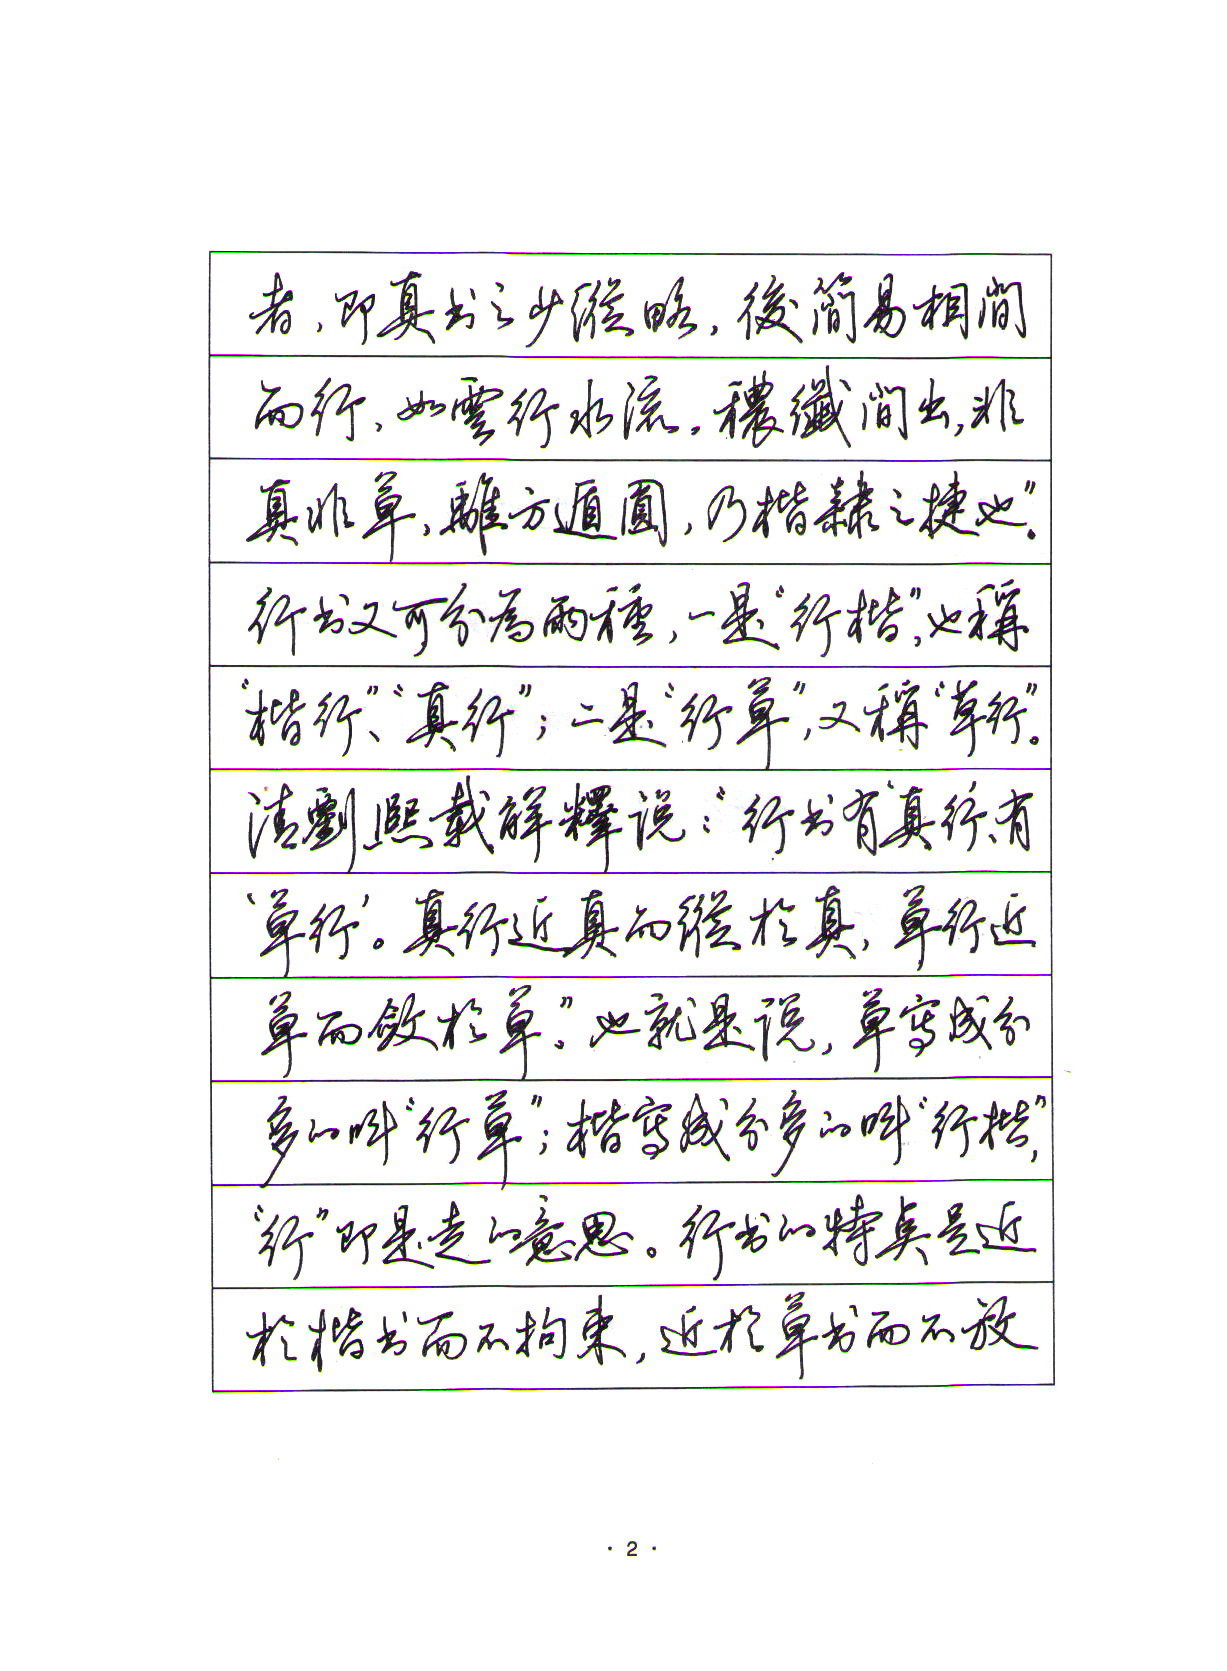 者，即真书之少縱略，後簡易相間
而行，如雲行水流，穠纖間出，非
真非草，離方遁圓，乃楷隸之捷也”。
行书又可分為兩種，一是“行楷”，也稱
“楷行”、“真行”；二是“行草”，又稱“草行”。
清劉熙載解釋说：“行书有‘真行’、有
‘草行’。真行近真而縱於真，草行近
草而斂於草”。也就是说，草寫成分
多的叫“行草”；楷寫成分多的叫“行楷”，
“行”即是走的意思。行书的特奌是近
於楷书而不拘束，近於草书而不放
· 2 ·